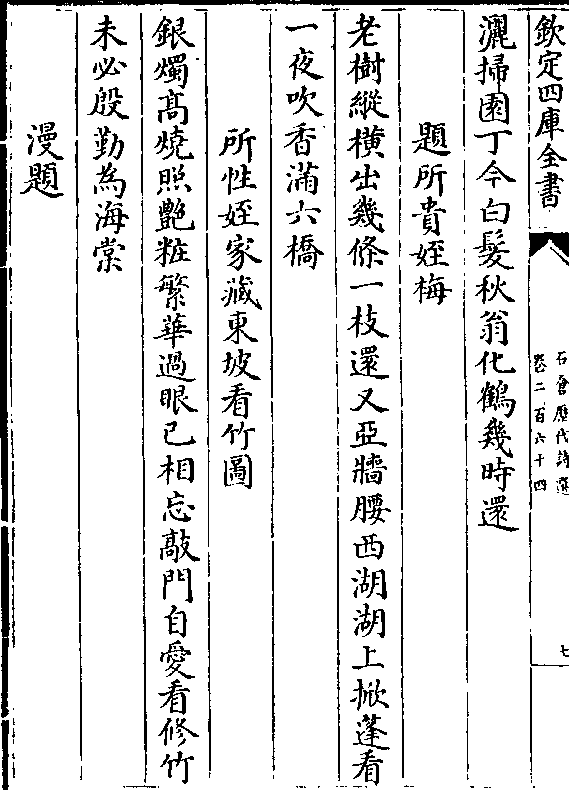 欽定四庫全書
石倉歷代詩選
卷二百六十四
七
灑掃園丁今白髮秋翁化鶴幾時還
題所貴姪梅
老樹縱橫出幾條一枝還又亞牆腰西湖湖上掀蓬看
一夜吹香滿六橋
所性姪家藏東坡看竹圖
銀燭髙燒照艷粧繁華過眼已相忘敲門自愛看修竹
未必殷勤為海棠
漫題